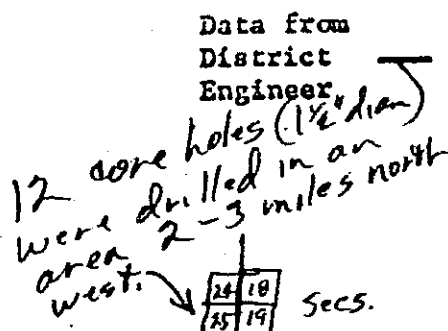 Data from
District
Engineer
12 core holes (1½" diam)
were drilled in an
area 2-3 miles north
west.
24 18 secs.
25 19